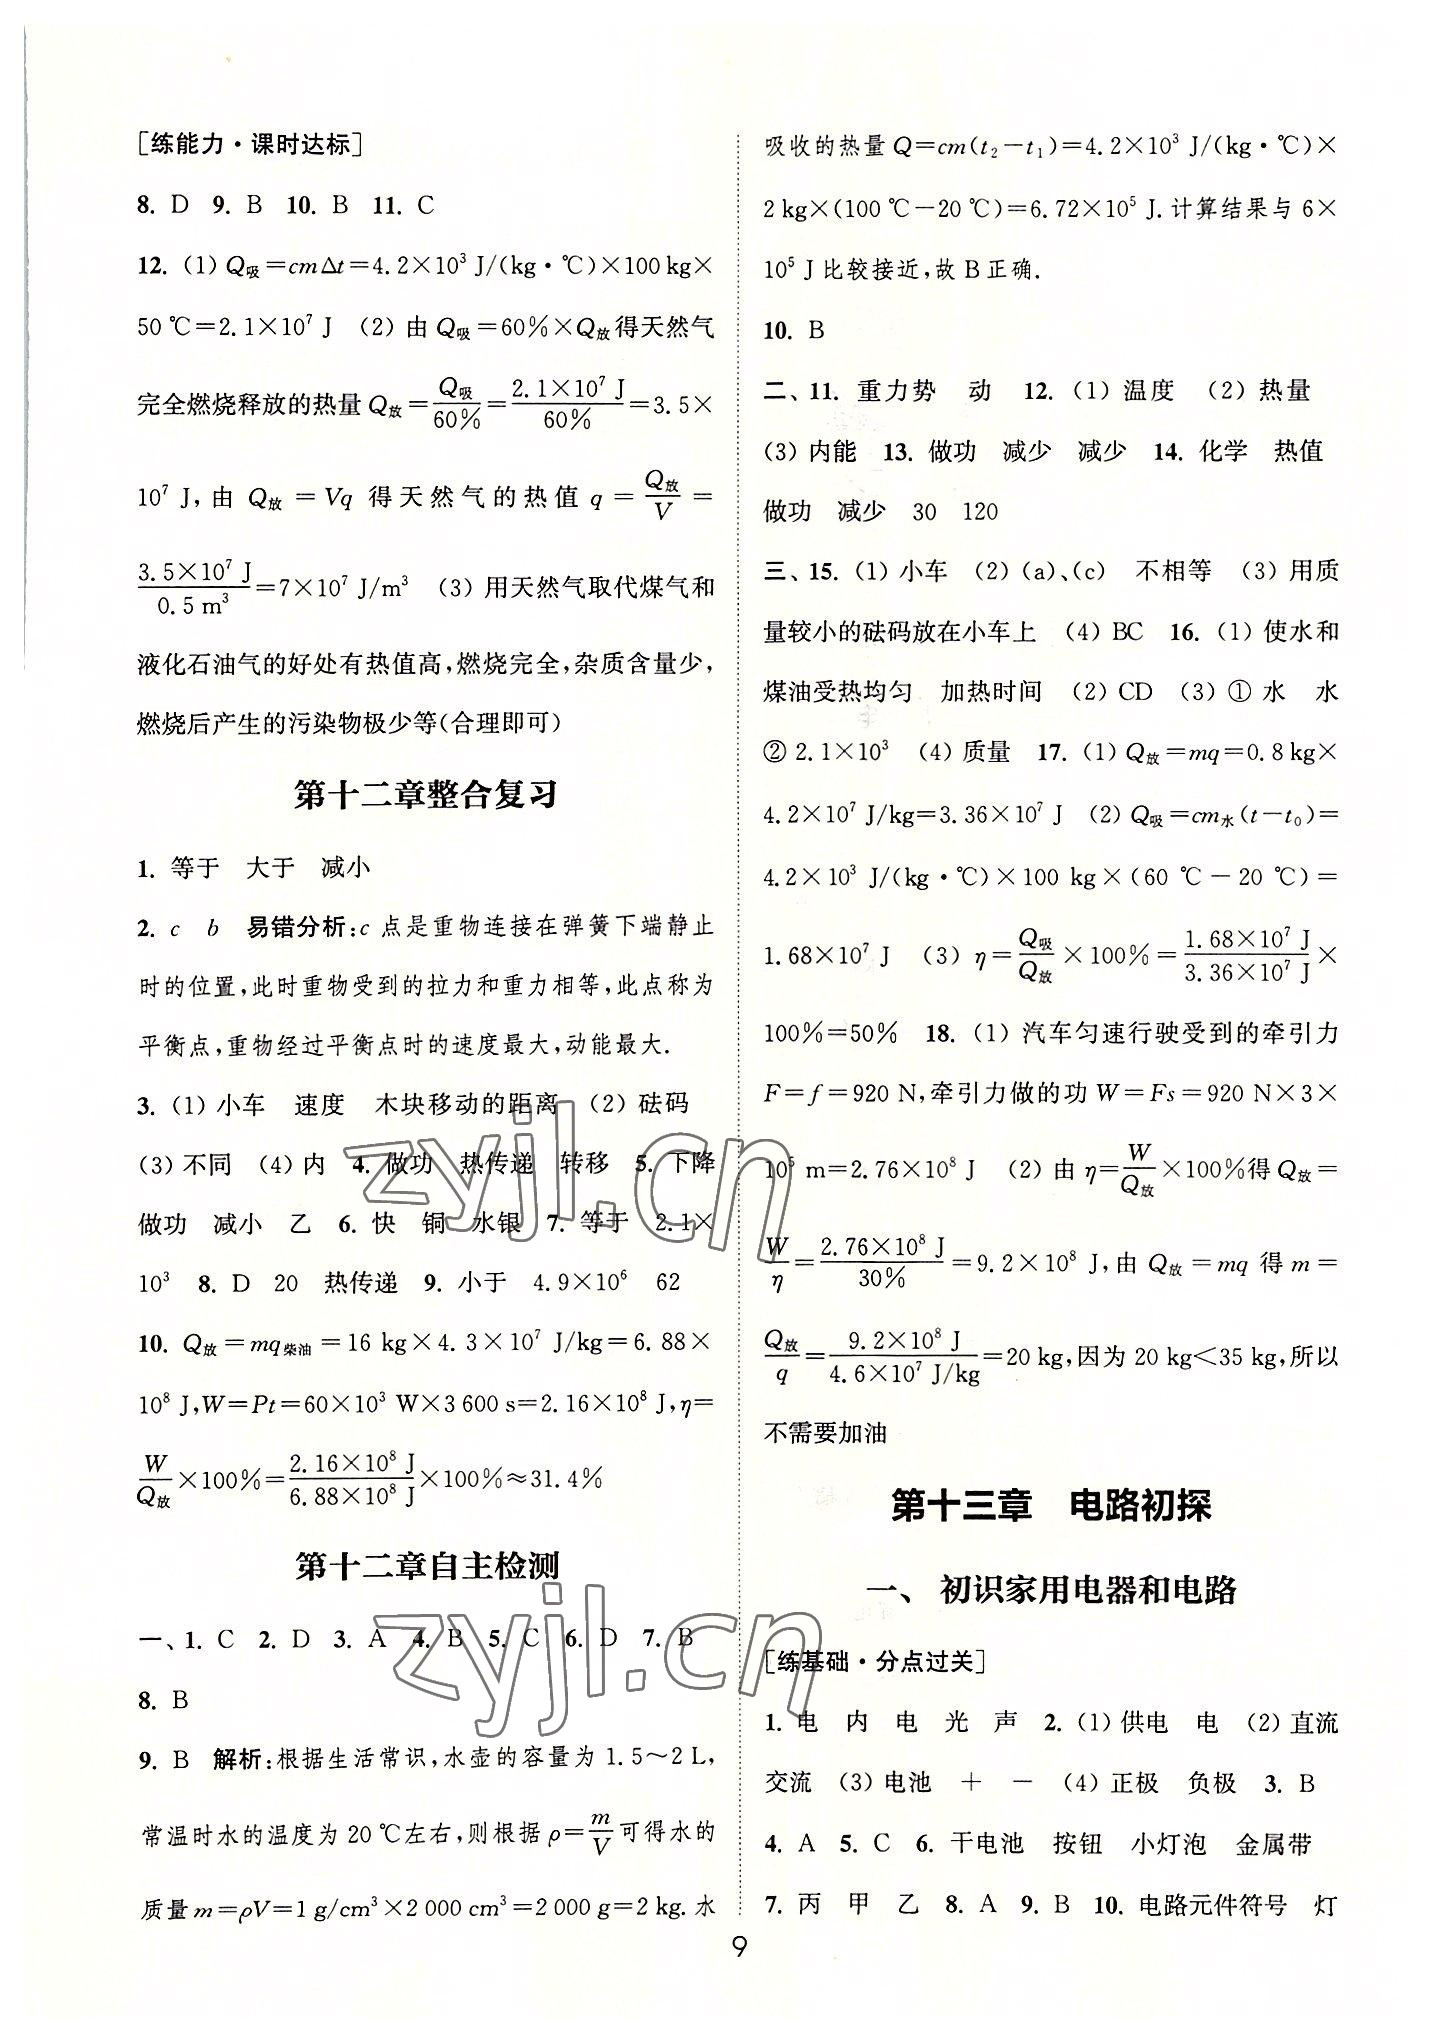 [练能力·课时达标]
8. D 9. B 10. B 11. C
12. (1) Q吸=cmΔt=4.2×10³ J/(kg·℃)×100 kg×
50 ℃=2.1×10⁷ J (2) 由 Q吸=60%×Q放得天然气
完全燃烧释放的热量 Q放=Q吸/60%=2.1×10⁷ J/60%=3.5×
10⁷ J,由 Q放=Vq 得天然气的热值 q=Q放/V=
3.5×10⁷ J/0.5 m³=7×10⁷ J/m³ (3) 用天然气取代煤气和
液化石油气的好处有热值高,燃烧完全,杂质含量少,
燃烧后产生的污染物极少等(合理即可)
第十二章整合复习
1. 等于 大于 减小
2. c b 易错分析:c 点是重物连接在弹簧下端静止
时的位置,此时重物受到的拉力和重力相等,此点称为
平衡点,重物经过平衡点时的速度最大,动能最大.
3. (1) 小车 速度 木块移动的距离 (2) 砝码
(3) 不同 (4) 内 4. 做功 热传递 转移 5. 下降
做功 减小 乙 6. 快 铜 水银 7. 等于 2.1×
10³ 8. D 20 热传递 9. 小于 4.9×10⁶ 62
10. Q放=mq柴油=16 kg×4.3×10⁷ J/kg=6.88×
10⁸ J,W=Pt=60×10³ W×3 600 s=2.16×10⁸ J,η=
W/Q放×100%=2.16×10⁸ J/6.88×10⁸ J×100%≈31.4%
第十二章自主检测
一、1. C 2. D 3. A 4. B 5. C 6. D 7. B
8. B
9. B 解析:根据生活常识,水壶的容量为 1.5~2 L,
常温时水的温度为 20 ℃左右,则根据 ρ=m/V可得水的
质量 m=ρV=1 g/cm³×2 000 cm³=2 000 g=2 kg. 水
吸收的热量 Q=cm(t₂-t₁)=4.2×10³ J/(kg·℃)×
2 kg×(100 ℃-20 ℃)=6.72×10⁵ J.计算结果与 6×
10⁵ J 比较接近,故 B 正确.
10. B
二、11. 重力势 动 12. (1) 温度 (2) 热量
(3) 内能 13. 做功 减少 减少 14. 化学 热值
做功 减少 30 120
三、15. (1) 小车 (2) (a)、(c) 不相等 (3) 用质
量较小的砝码放在小车上 (4) BC 16. (1) 使水和
煤油受热均匀 加热时间 (2) CD (3) ① 水 水
② 2.1×10³ (4) 质量 17. (1) Q放=mq=0.8 kg×
4.2×10⁷ J/kg=3.36×10⁷ J (2) Q吸=cm水(t-t₀)=
4.2×10³ J/(kg·℃)×100 kg×(60 ℃-20 ℃)=
1.68×10⁷ J (3) η=Q吸/Q放×100%=1.68×10⁷ J/3.36×10⁷ J×
100%=50% 18. (1) 汽车匀速行驶受到的牵引力
F=f=920 N,牵引力做的功 W=Fs=920 N×3×
10⁵ m=2.76×10⁸ J (2) 由 η=W/Q放×100%得 Q放=
W/η=2.76×10⁸ J/30%=9.2×10⁸ J,由 Q放=mq 得 m=
Q放/q=9.2×10⁸ J/4.6×10⁷ J/kg=20 kg,因为 20 kg<35 kg,所以
不需要加油
第十三章 电路初探
一、初识家用电器和电路
[练基础·分点过关]
1. 电 内 电 光 声 2. (1) 供电 电 (2) 直流
交流 (3) 电池 + - (4) 正极 负极 3. B
4. A 5. C 6. 干电池 按钮 小灯泡 金属带
7. 丙 甲 乙 8. A 9. B 10. 电路元件符号 灯
9
zyjl.cn
zyjl.cn